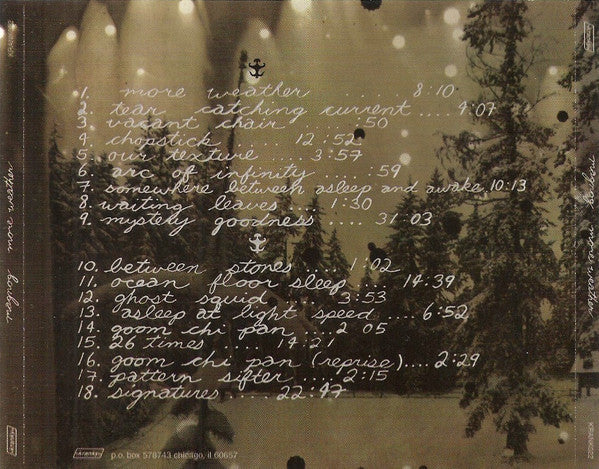 1. more weather ........ 8:10
2. tear catching current .... 4:07
3. vacant chair ... :50
4. chopstick .... 12:52
5. our texture .... 3:57
6. arc of infinity .... :59
7. somewhere between asleep and awake, 10:13
8. waiting leaves ... 1:30
9. mystery goodness .... 31:03
10. between stones .... 1:02
11. ocean floor sleep ... 14:39
12. ghost squid ... 3:53
13. asleep at light speed .... 6:52
14. goom chi pan ... 2 05
15. 26 times .... 14:21
16. goom chi pan (reprise).... 2:29
17. pattern sifter .... 2:15
18. signatures ..... 22:47
kranky p.o. box 578743 chicago, il 60657
more weather
more weather
kranky